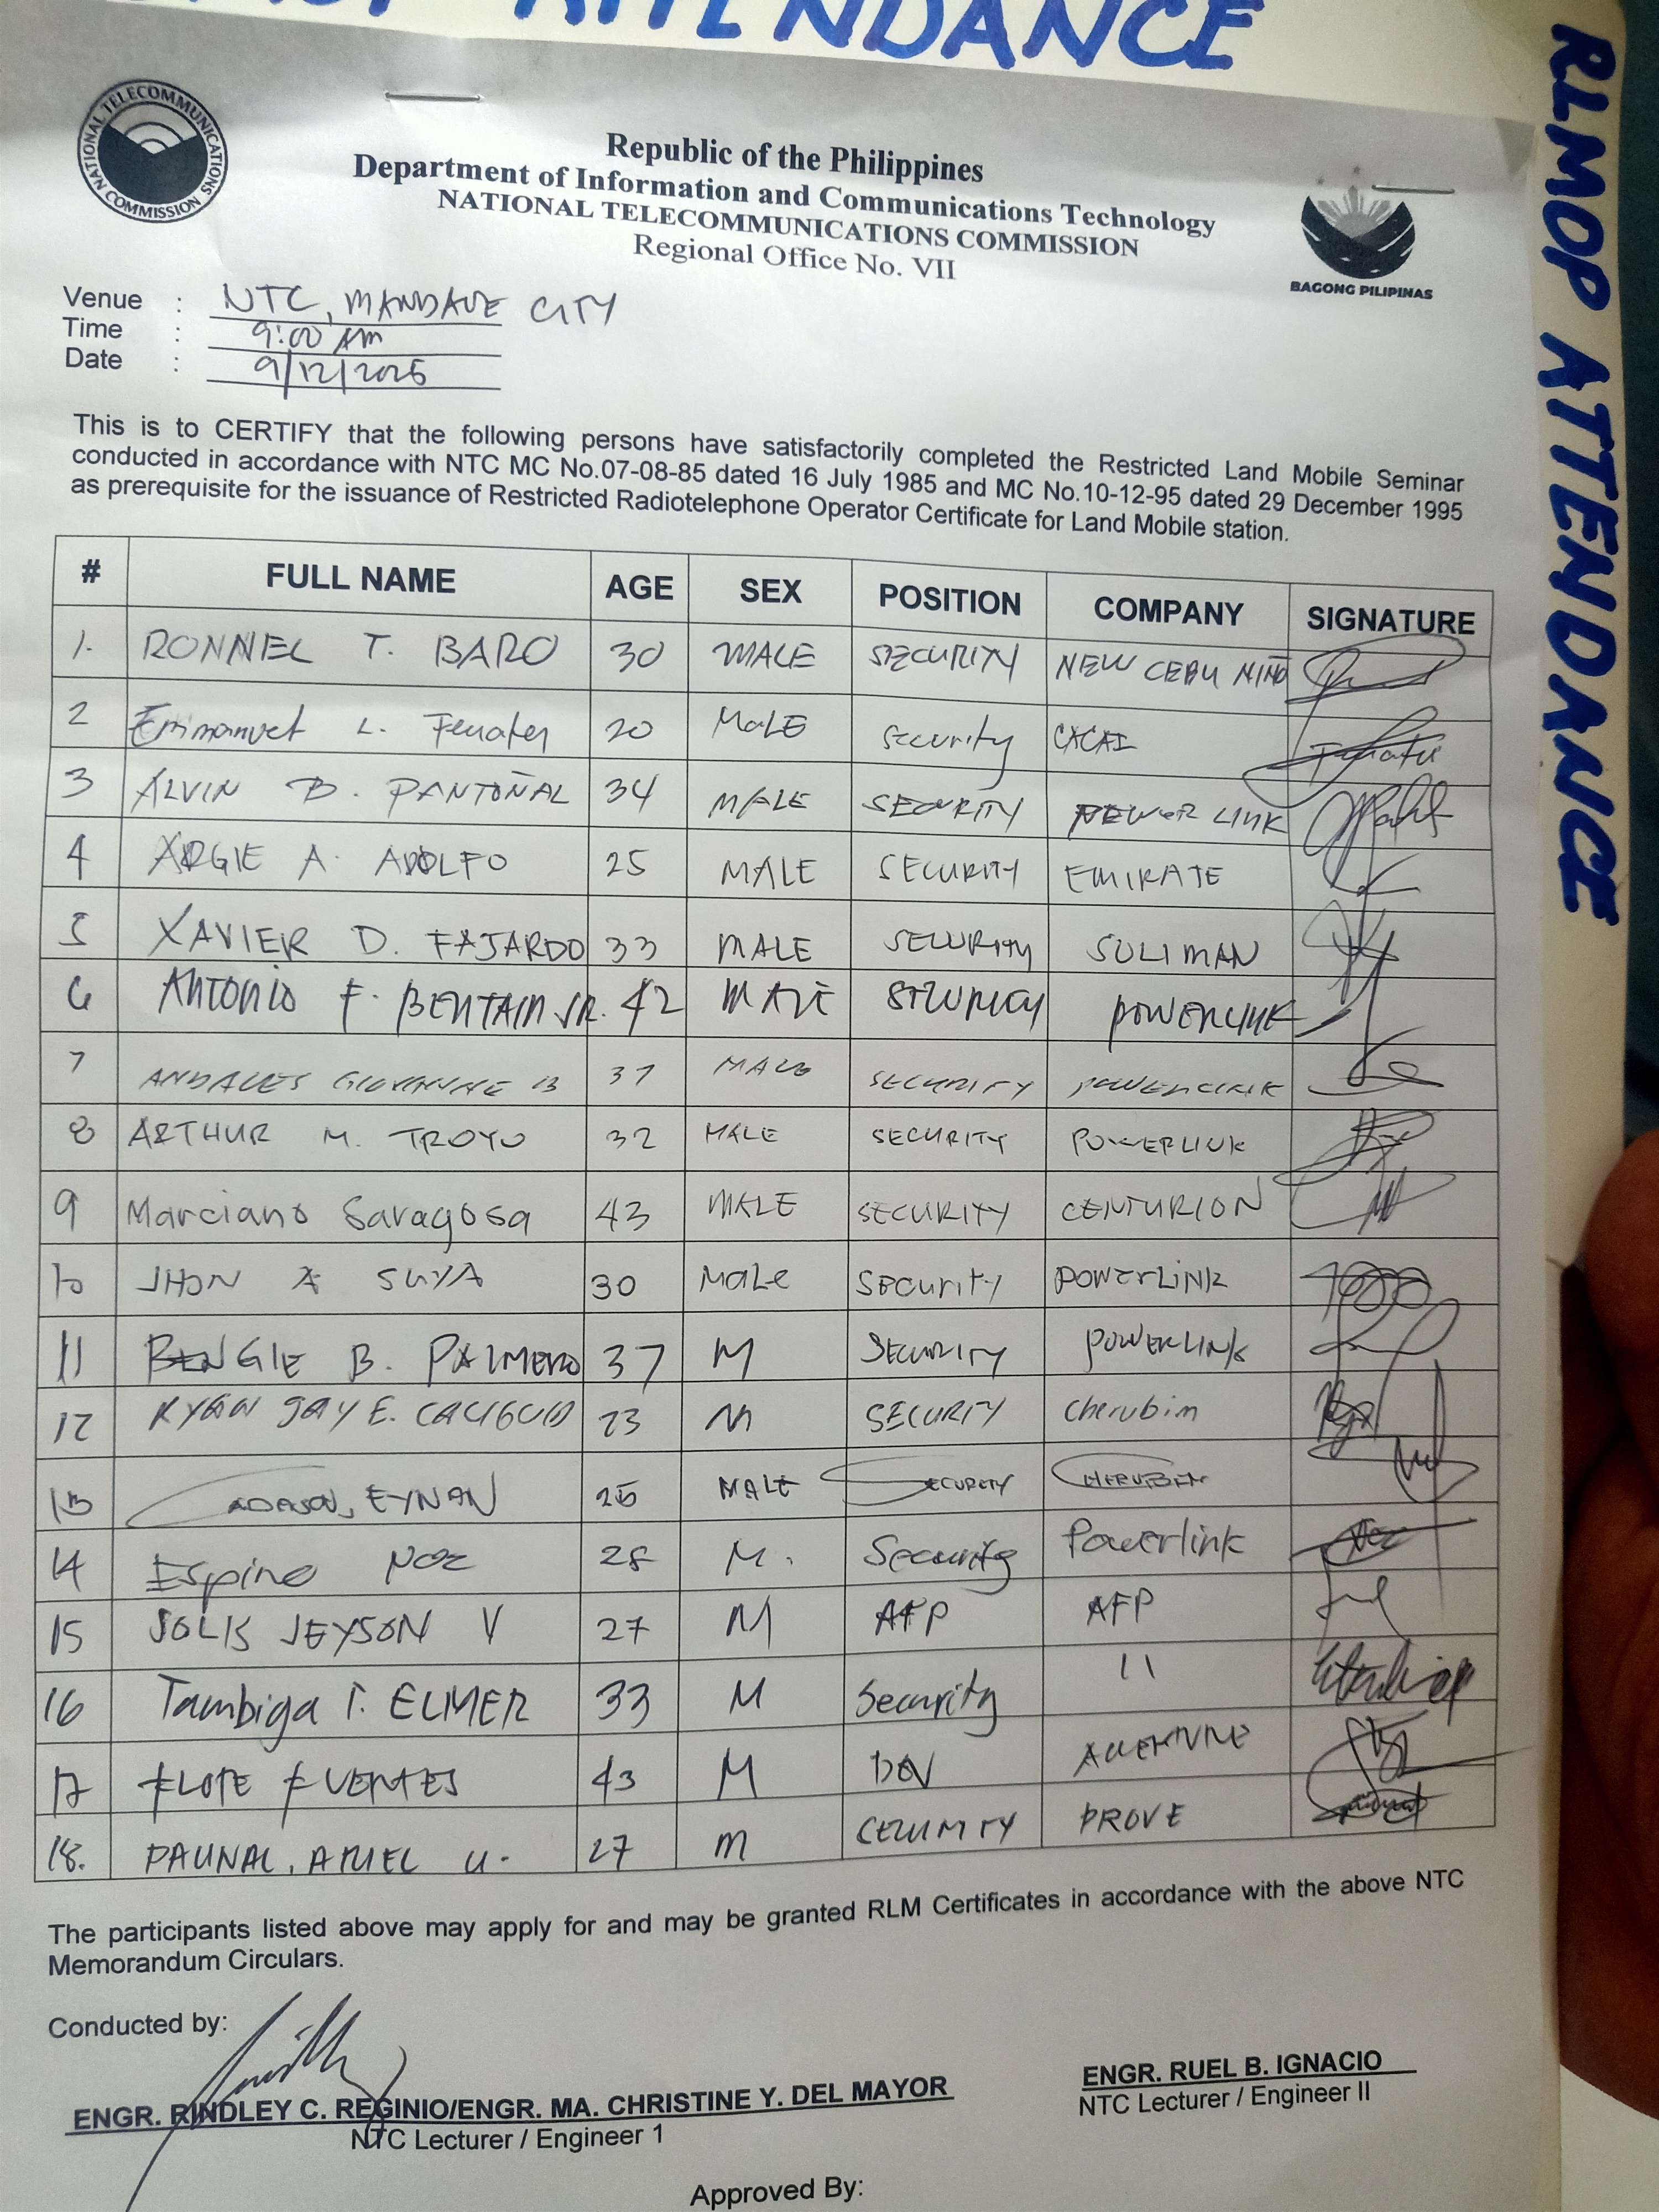 ATTENDANCE
RLMOP ATTENDANCE
NATIONAL TELECOMMUNICATIONS COMMISSION
Republic of the Philippines
Department of Information and Communications Technology
NATIONAL TELECOMMUNICATIONS COMMISSION
Regional Office No. VII
BAGONG PILIPINAS
Venue : NTC, MANDAUE CITY
Time : 9:00 AM
Date : 9/12/2025
This is to CERTIFY that the following persons have satisfactorily completed the Restricted Land Mobile Seminar
conducted in accordance with NTC MC No.07-08-85 dated 16 July 1985 and MC No.10-12-95 dated 29 December 1995
as prerequisite for the issuance of Restricted Radiotelephone Operator Certificate for Land Mobile station.
# FULL NAME AGE SEX POSITION COMPANY SIGNATURE
1. RONNEL T. BARO 30 MALE SECURITY NEW CEBU NINO
2 Emmanuel L. 20 MaLE Security CACAI
3 ALVIN B. PANTOÑAL 34 MALE SECURITY LINK
4 ARGIE A. ADOLFO 25 MALE SECURITY EMIRATE
5 XAVIER D. FAJARDO 33 MALE SECURITY SULIMAN
6 ANTONIO F. BENTAIN JR. 42 MALE SECURITY POWERLINK
7 ANDALES B 37 MALE SECURITY POWERLINK
8 ARTHUR M. TROYO 32 MALE SECURITY POWERLINK
9 Marciano Saragosa 43 MALE SECURITY CENTURION
10 JHON A SUYA 30 MaLe SECurity POWErLiNK
11 GIE B. PALMERO 37 M SECURITY POWERLINK
12 RYAN JAY E. 23 M SECURITY Cherubim
13 EYNAN MALE SECURITY CHERUBIM
14 Espino Noe 28 M. Security Powerlink
15 SOLIS JEYSON V 27 M AFP AFP
16 Tambiga T. ELMER 33 M Security 11
17 FLOTE FUENTES 43 M
18. PAUNAL, ARIEL U. 27 M CECURITY PROVE
The participants listed above may apply for and may be granted RLM Certificates in accordance with the above NTC
Memorandum Circulars.
Conducted by:
ENGR. RINDLEY C. REGINIO/ENGR. MA. CHRISTINE Y. DEL MAYOR
NTC Lecturer / Engineer 1
ENGR. RUEL B. IGNACIO
NTC Lecturer / Engineer II
Approved By: